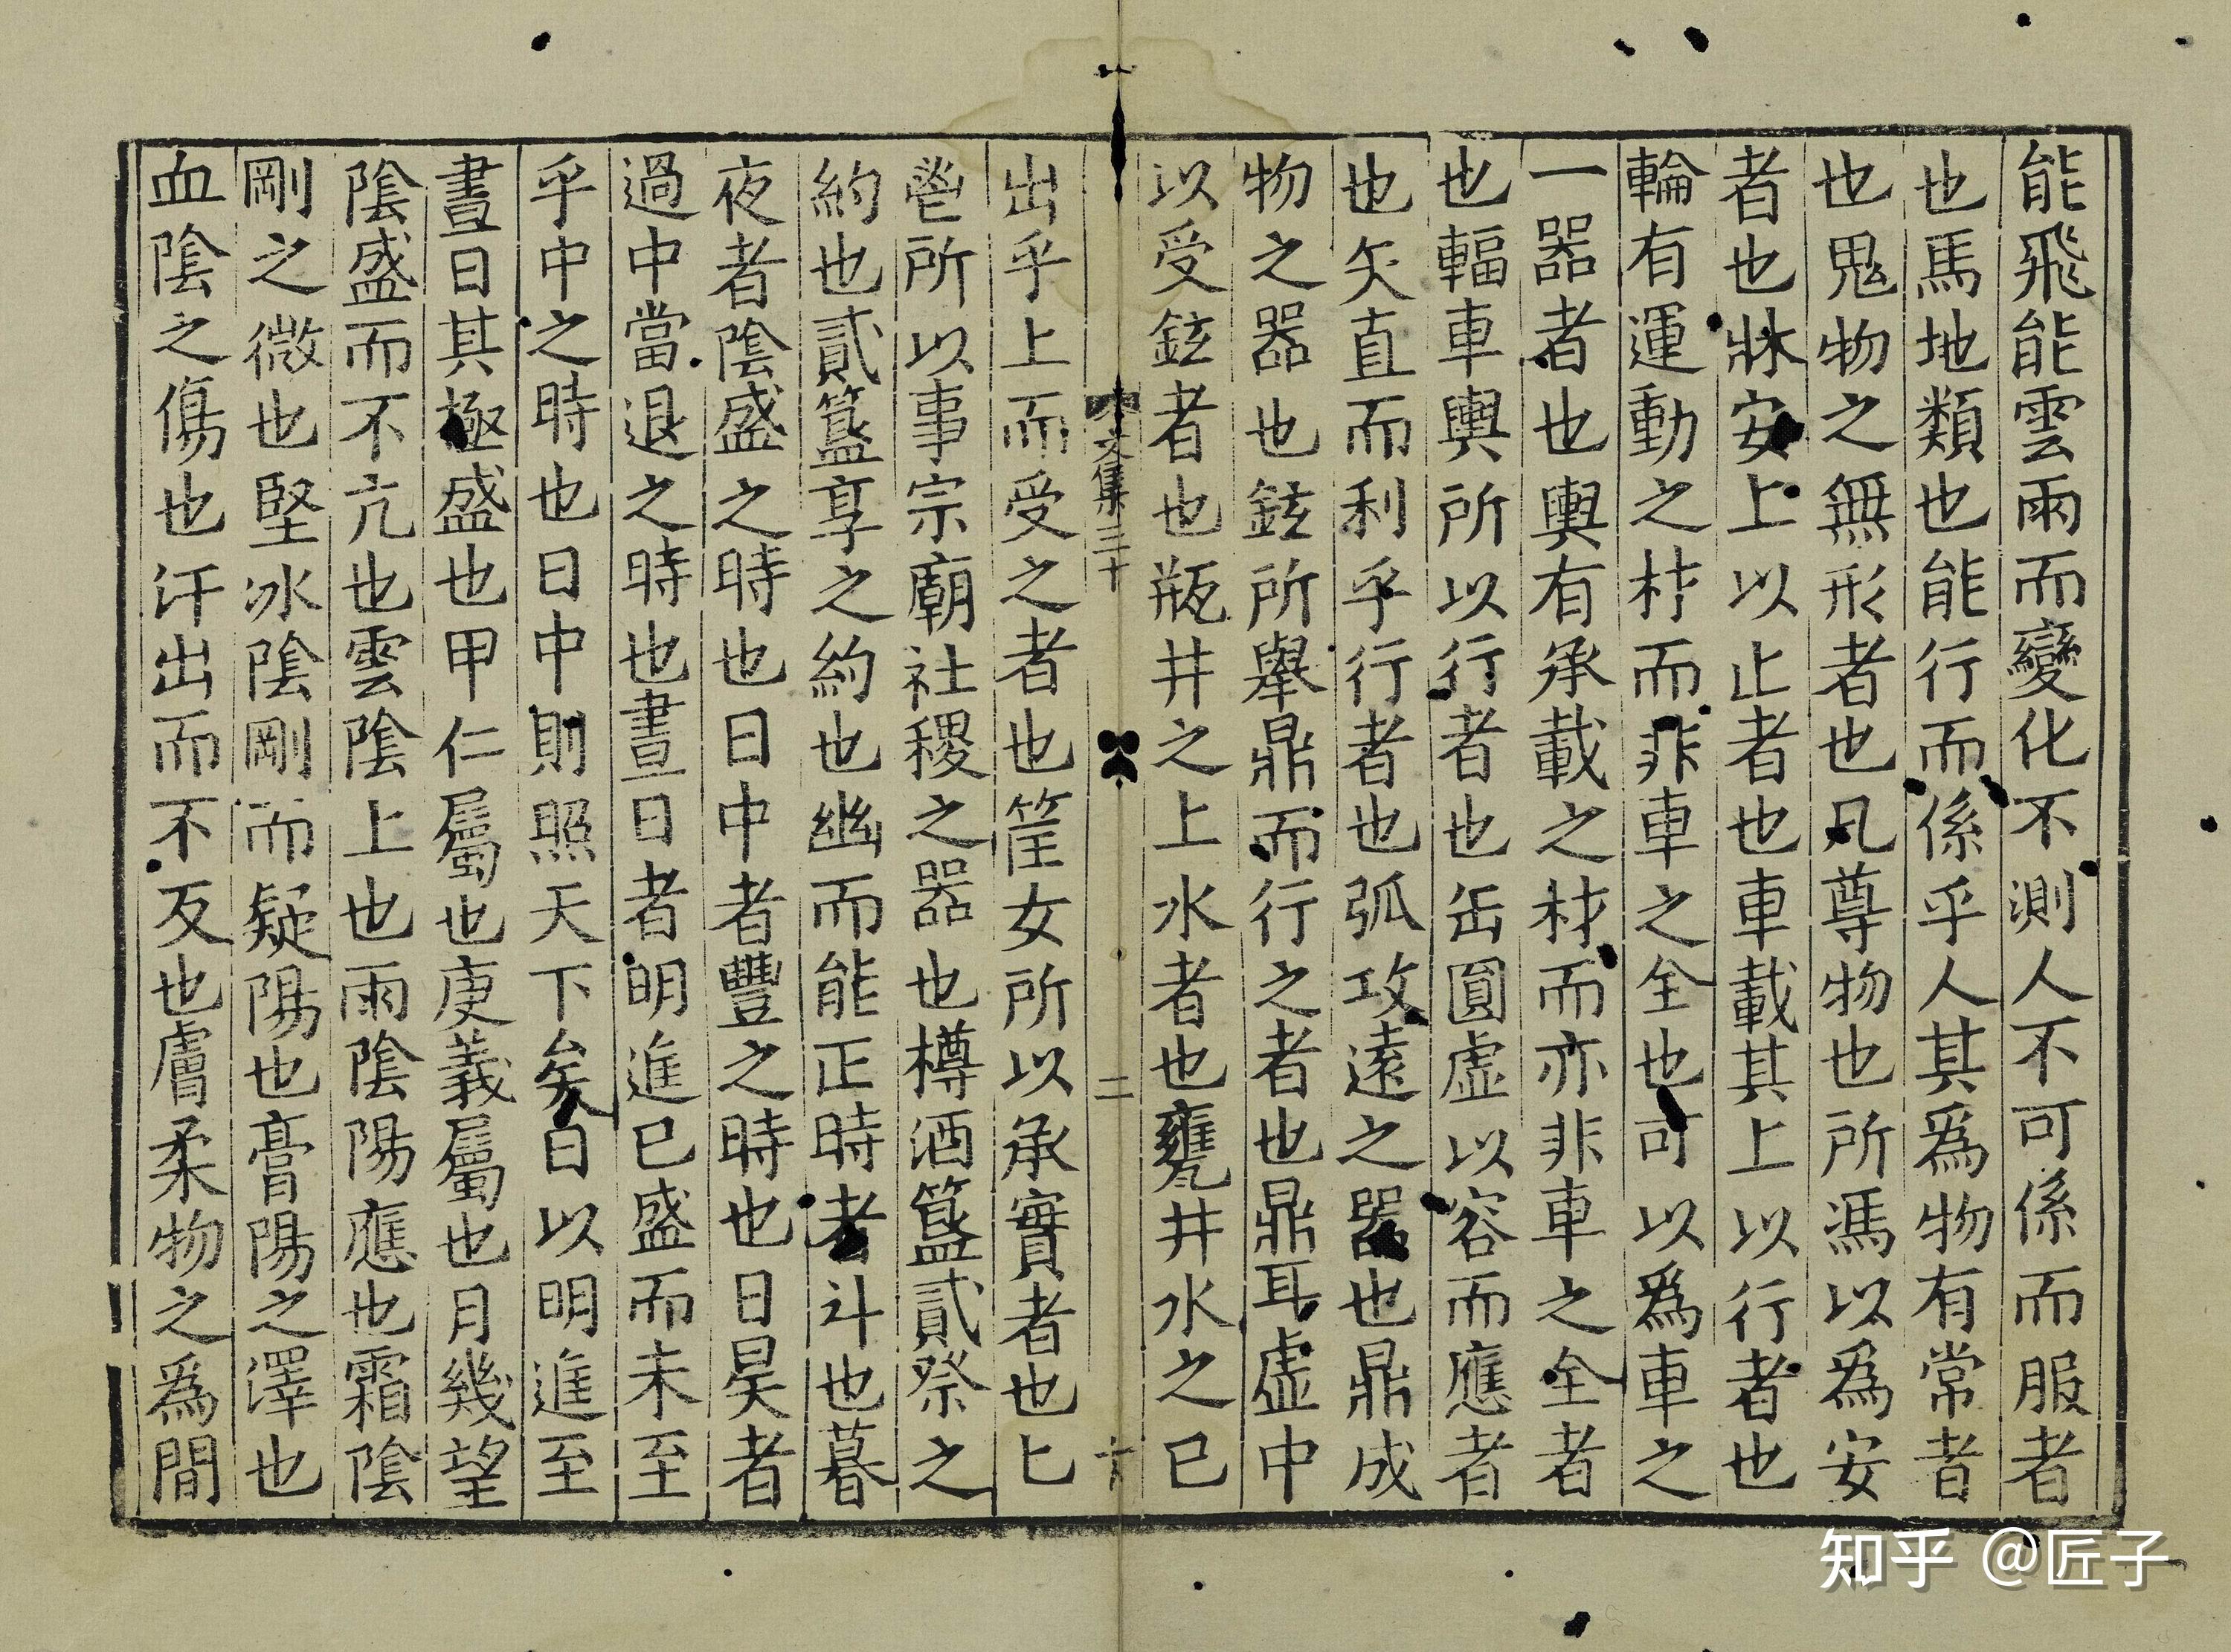 能飛能雲雨而變化不測人不可係而服者
也馬地類也能行而係乎人其爲物有常者
也鬼物之無形者也凡尊物也所馮以爲安
者也牀安上以止者也車載其上以行者也
輪有運動之材而非車之全也可以爲車之
一器者也輿有承載之材而亦非車之全者
也輻車輿所以行者也缶圓虛以容而應者
也矢直而利乎行者也弧攻遠之器也鼎成
物之器也鉉所舉鼎而行之者也鼎耳虛中
以受鉉者也瓶井之上水者也甕井水之已
文集三十
二
出乎上而受之者也筐女所以承實者也匕
鬯所以事宗廟社稷之器也樽酒簋貳祭之
約也貳簋享之約也幽而能正時者斗也暮
夜者陰盛之時也日中者豐之時也日昃者
過中當退之時也晝日者明進已盛而未至
乎中之時也日中則照天下矣日以明進至
晝日其極盛也甲仁屬也庚義屬也月幾望
陰盛而不亢也雲陰上也雨陰陽應也霜陰
剛之微也堅冰陰剛而疑陽也膏陽之澤也
血陰之傷也汗出而不反也膚柔物之爲間
知乎 @匠子